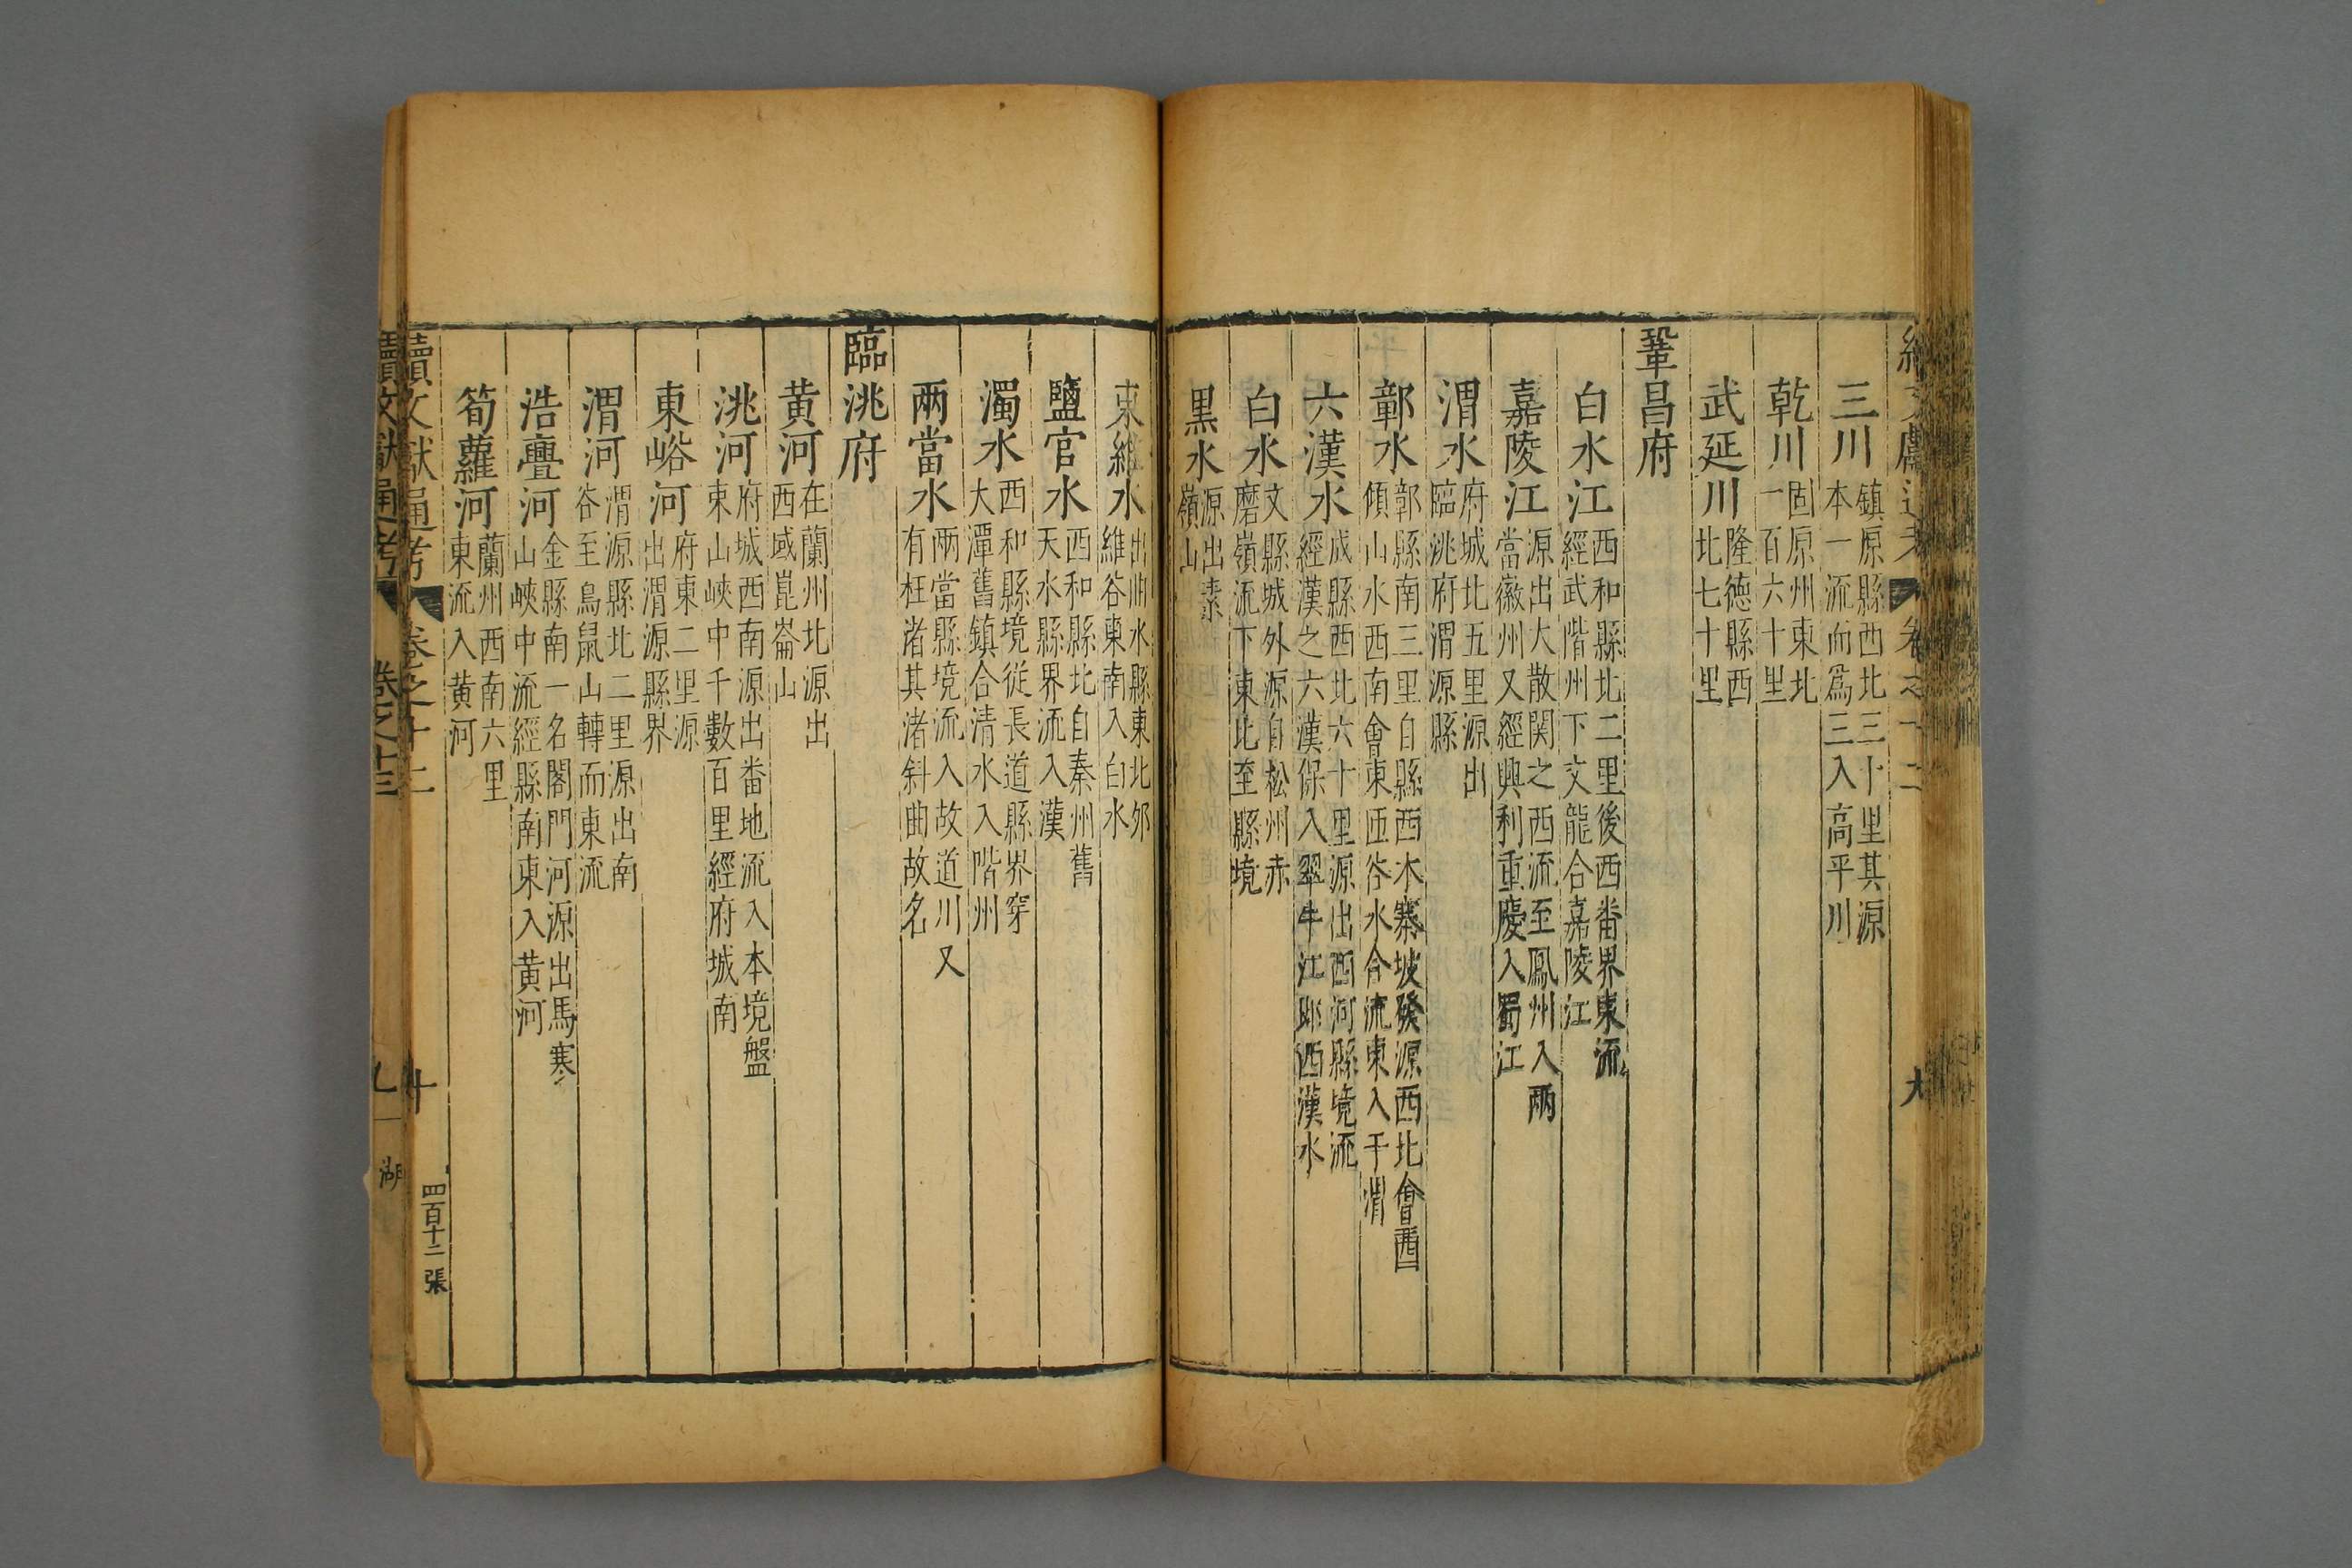 三川鎮原縣西北三十里其源本一流而爲三入高平川
乾川固原州東北一百六十里
武延川隆德縣西北七十里
鞏昌府
白水江西和縣北二里後西畨界東流經武階州下文龍合嘉陵江
嘉陵江源出大散関之西流至鳳州入兩當徽州又經興利重慶入蜀江
渭水府城北五里源出臨洮府渭源縣
鄣水鄣縣南三里自縣西木寨坡發源西北會酉傾山水西南會東匝谷水合流東入于渭
六漢水成縣西北六十里源出西河縣境流經漢之六漢保入翠牛江即西漢水
白水文縣城外源自松州赤磨嶺流下東北至縣境
黒水源出素嶺山
東維水出嘝水縣東北邜維谷東南入白水
鹽官水西和縣北自秦州舊天水縣界流入漢
濁水西和縣境從長道縣界穿大潭舊鎮合清水入階州
两當水两當縣境流入故道川又有枉渚其渚斜曲故名
臨洮府
黄河在蘭州北源出西域崑崙山
洮河府城西南源出畨地流入本境盤束山峽中千數百里經府城南
東峪河府東二里源出渭源縣界
渭河渭源縣北二里源出南谷至鳥鼠山轉而東流
浩亹河金縣南一名閤門河源出馬寒山峽中流經縣南東入黄河
筍蘿河蘭州西南六里東流入黄河
續文獻通考 卷之十二 十
四百十二 張
續文獻通考 卷之十三 九 湖